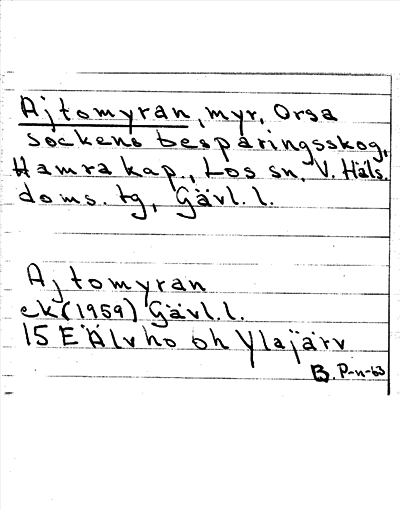 Ajtomyran, myr, Orsa
sockens besparingsskog,
Hamra kap., Los sn, V. Häls.
doms. tg, Gävl. l.
Ajtomyran
ek (1959) Gävl. l.
15 E Älvho oh Ylajärv
B. P-n-63